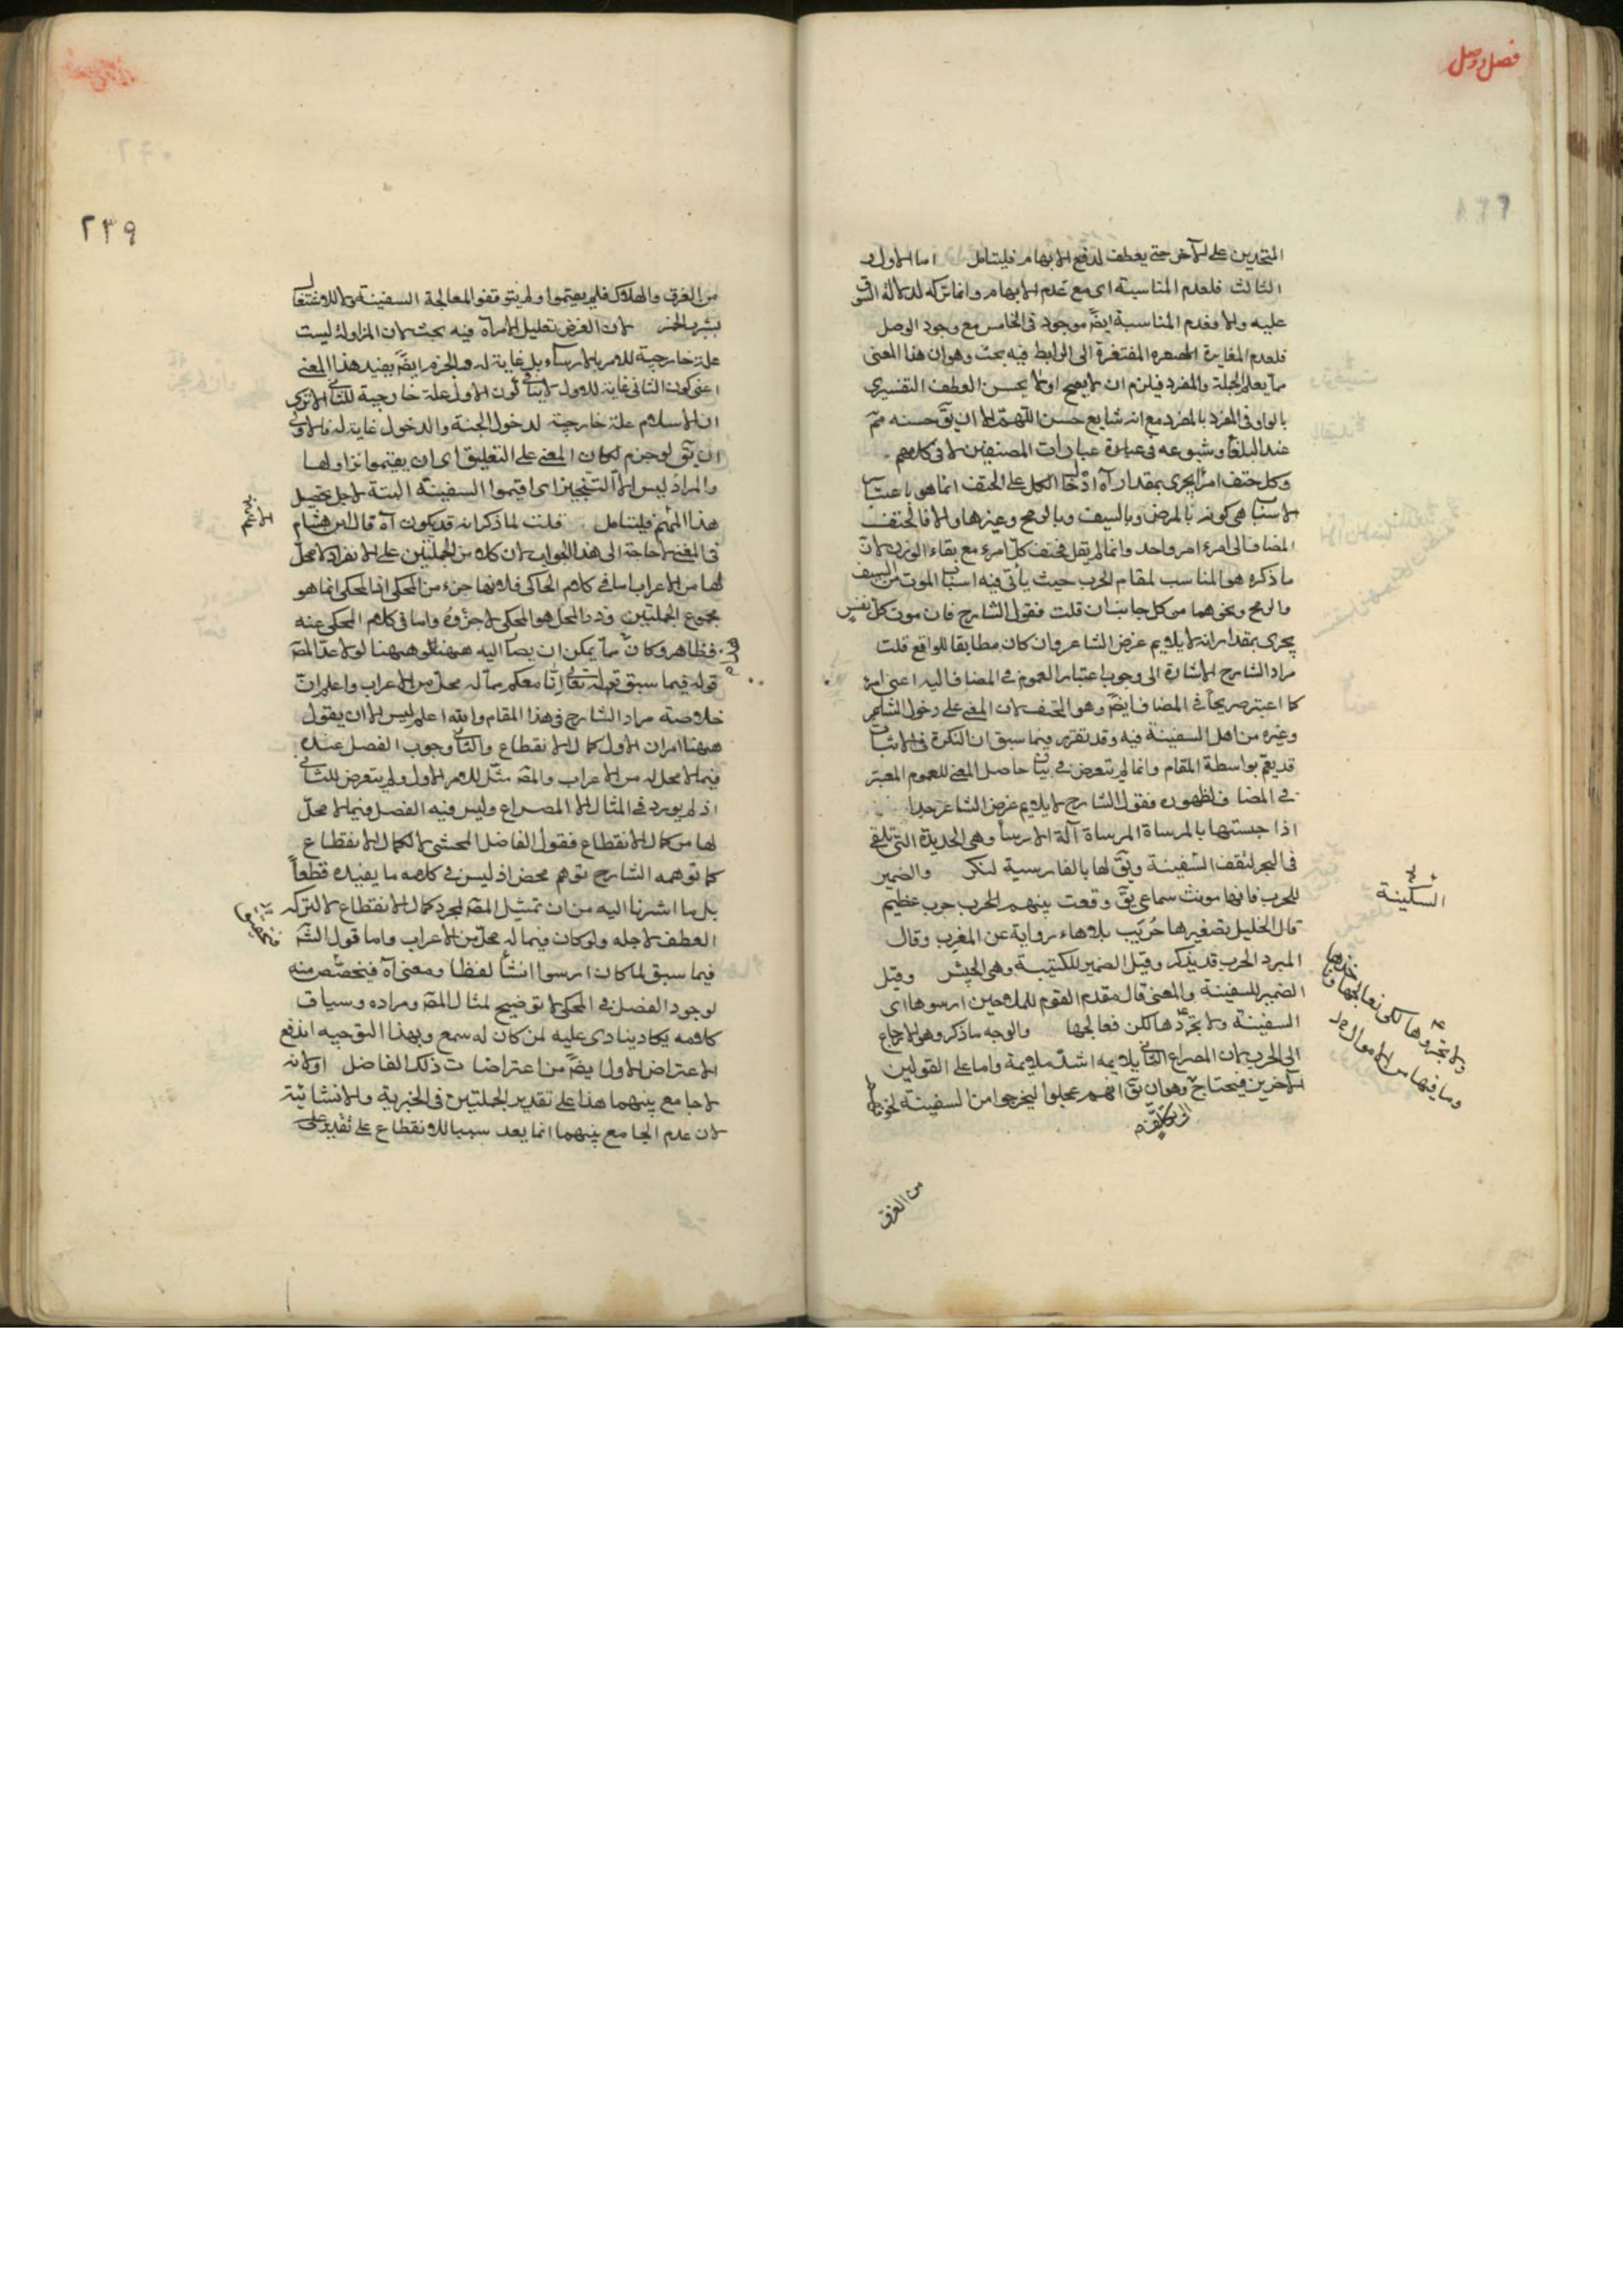 فصل وصل
المتحدين على الآخر حتى يعطف لدفع الابهام فليتامل اما الاول و
الثالث فلعدم المناسبة اى مع عدم الابهام وانما تركه لدلالة السوق
عليه والا فعدم المناسبة ايضً موجود فى الخامس مع وجود الوصل
فلعدم المغايرة المفتقرة الى الرابط فيه بحث وهو ان هذا المعنى
مما يعم الجملة والمفرد فيلزم ان لا يصح او لا يحسن العطف التفسيرى
بالواو فى المفرد بالمفرد مع انه شايع حسن اللهم الا ان يق حسنه ثمّ
عند البلغاء وشيوعه فى عبارات المصنفين لا فى كلامهم
وكل حتف امرئ يجرى بمقدار آه ادخال الكل على الحتف انما هو باعتبار
الاسباب هى كونه بالمرض وبالسيف وبالرمح وغيرها والا فالحتف
المضاف الى امرء امر واحد وانما لم يقل فحتف كل امرء مع بقاء الوزن لانّ
ما ذكره هو المناسب لمقام الحرب حيث يأتى فيه اسباب الموت من السيف
والرمح ونحوهما من كل جانب ان قلت فقول الشارح فان موت كل نفس
يجرى بمقدار انه لا يلايم غرض الشاعر وان كان مطابقا للواقع قلت
مراد الشارح الاشارة الى وجوب اعتبار العموم فى المضاف اليه اعنى امرء
كما اعتبر صريحاً فى المضاف ايضً وهو الحتف لان المعنى على دخول الشاعر
وغيره من اهل السفينة فيه وقد تقرر فيما سبق ان النكرة فى الاثبات
قد يعم بواسطة المقام وانما لم يتعرض فى بيان حاصل المعنى للعموم المعتبر
فى المضاف لظهوره فقول الشارح لا يلايم غرض الشاعر جدا
اذا حبستها بالمرساة المرساة آلة الارساء وهى الحديدة التى تلقى
فى البحر لتقف السفينة ويق لها بالفارسية لنكر والضمير
للحرب فانها مونث سماعى يق وقعت بينهم الحرب حرب عظيم
قال الخليل تصغيرها حُرَيب بلا هاء رواية عن المغرب وقال
المبرد الحرب قد يذكر وقيل الضمير للكتيبة وهى الجيش وقيل
الضمير للسفينة والمعنى قال مقدم القوم للملاحين ارسوها اى
السفينة ولا تجروها لكن نعالجها والوجه ما ذكر وهو الارجاع
الى الحرب لان المصراع الثانى يلايمه اشد ملايمة واما على القولين
الآخرين فيحتاج وهو ان يق انهم عجلوا ليخرجوا من السفينة
الى تكلف
السكينة
ولا تجروها لكى نعالجها
وما فيها من الاموال
من الغرق
٢٣٩
من الغرق والهلاك فلم يقيموا ولم يتوقفوا لمعالجة السفينة والاشتغال
بشرب الخمر لان الغرض تعليل الامر آه فيه بحث لان المزاولة ليست
علة خارجية للامر بالارساء بل غاية له والجزم ايضً يفيد هذا المعنى
اعنى كون الثانى غاية للاول لا ينافى كون الاول علة خارجية للثانى الا ترى
ان الاسلام علة خارجية لدخول الجنة والدخول غاية له فالاولى
ان يق لو جزم لكان المعنى على التعليق اى ان يقيموا نزاولها
والمراد ليس الا التنجيز اى اقيموا السفينة البتة لاجل تحصيل
هذا المهم فليتامل قلت لما ذكر انه قد يكون آه قال ابن هشام
فى المغنى لا حاجة الى هذا الجواب لان كلا من الجملتين على الانفراد لا محل
لها من الاعراب اما فى كلام الحاكى فلانها جزء من المحكى انما المحكى انما هو
مجموع الجملتين وذو المحل هو المحكى لا جزؤه واما فى كلام المحكى عنه
فظاهر وكانّ ما يمكن ان يصار اليه ههنا لولا عدّ المص
قوله فيما سبق قوله تعالى انّا معكم مما له محل من الاعراب واعلم ان
خلاصة مراد الشارح فى هذا المقام والله اعلم ليس الا ان يقول
ههنا امران الاول كمال الانقطاع والثانى وجوب الفصل عنده
فيما لا محل له من الاعراب والمص مثّل للامر الاول ولم يتعرض للثانى
اذ لم يورد فى المثال الا المصراع وليس فيه الفصل فيما لا محلّ
لها من كمال الانقطاع فقول الفاضل المحشى لا لكمال الانقطاع
كما توهمه الشارح توهم محض اذ ليس فى كلامه ما يفيده قطعاً
بل ما اشرنا اليه من ان تمثيل المص لمجرد كمال الانقطاع لا لترك
العطف لاجله ولو كان فيما له محل من الاعراب واما قول الش
فيما سبق لما كان ارسوا انشاء لفظا ومعنى آه فيتحصّص منه
لوجود الفصل فى المحكى لا توضيح لمثال المص ومراده وسياق
كلامه يكاد ينادى عليه لمن كان له سمع وبهذا التوجيه اندفع
الاعتراض الاول ايضً من اعتراضات ذلك الفاضل او لانه
لا جامع بينهما هذا على تقدير الجملتين فى الخبرية والانشائية
لان عدم الجامع بينهما انما يعد سببا للانقطاع على تقدير